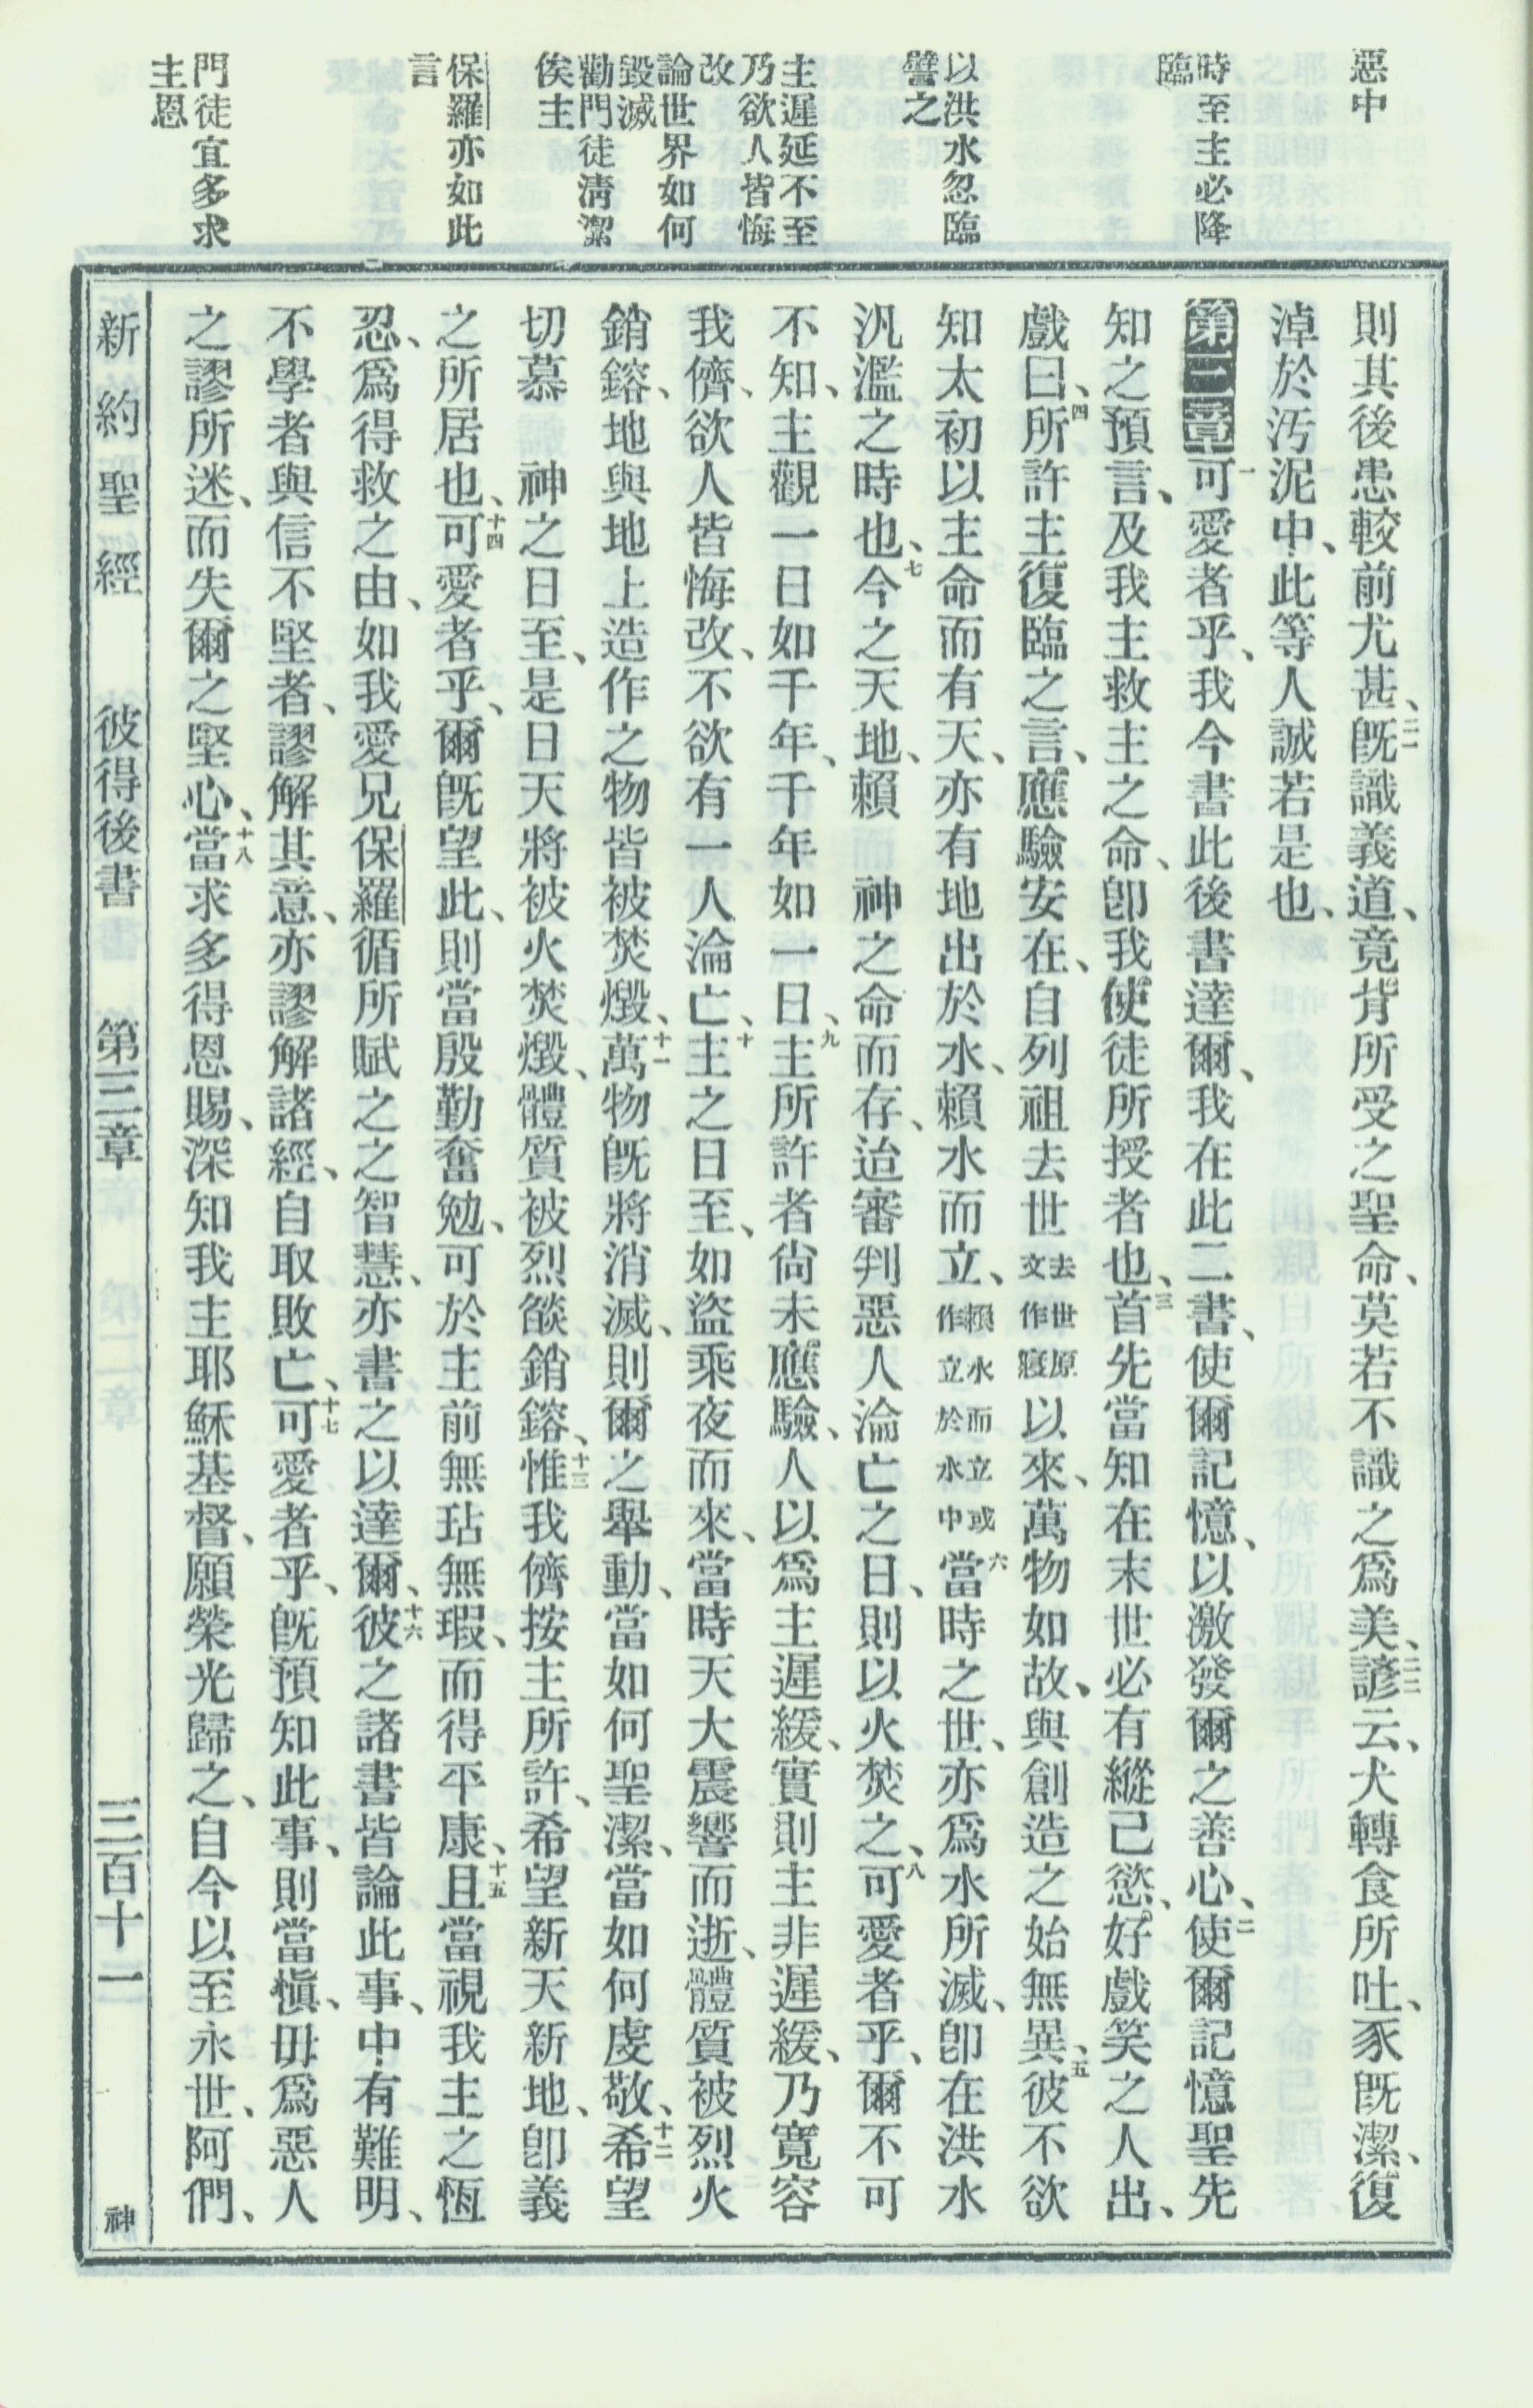 惡中
時至主必降
臨
以洪水忽臨
譬之
主遲延不至
乃欲人皆悔
改
論世界如何
毀滅
勸門徒清潔
俟主
保羅亦如此
言
門徒宜多求
主恩
則其後患較前尤甚、二一既識義道、竟背所受之聖命、莫若不識之爲美、二二諺云、犬轉食所吐、豕既潔、復
淖於汚泥中、此等人誠若是也、
第三章一可愛者乎、我今書此後書達爾、我在此二書、使爾記憶、以激發爾之善心、二使爾記憶聖先
知之預言、及我主救主之命、卽我使徒所授者也、三首先當知在末世必有縱己慾、好戲笑之人出、
戲曰、四所許主復臨之言、應驗安在、自列祖去世去世原文作寢以來、萬物如故、與創造之始無異、五彼不欲
知太初以主命而有天、亦有地出於水、賴水而立、賴水而立或作立於水中六當時之世、亦爲水所滅、卽在洪水
汎濫之時也、七今之天地、賴 神之命而存、迨審判惡人淪亡之日、則以火焚之、八可愛者乎、爾不可
不知、主觀一日如千年、千年如一日、九主所許者尙未應驗、人以爲主遲緩、實則主非遲緩、乃寬容
我儕、欲人皆悔改、不欲有一人淪亡、十主之日至、如盜乘夜而來、當時天大震響而逝、體質被烈火
銷鎔、地與地上造作之物皆被焚燬、十一萬物既將消滅、則爾之舉動、當如何聖潔、當如何虔敬、十二希望
切慕 神之日至、是日天將被火焚燬、體質被烈燄銷鎔、十三惟我儕按主所許、希望新天新地、卽義
之所居也、十四可愛者乎、爾既望此、則當殷勤奮勉、可於主前無玷無瑕、而得平康、十五且當視我主之恆
忍、爲得救之由、如我愛兄保羅循所賦之之智慧、亦書之以達爾、十六彼之諸書皆論此事、中有難明、
不學者與信不堅者、謬解其意、亦謬解諸經、自取敗亡、十七可愛者乎、既預知此事、則當愼、毋爲惡人
之謬所迷、而失爾之堅心、十八當求多得恩賜、深知我主耶穌基督、願榮光歸之、自今以至永世、阿們、
新約聖經 彼得後書 第三章 三百十一 神